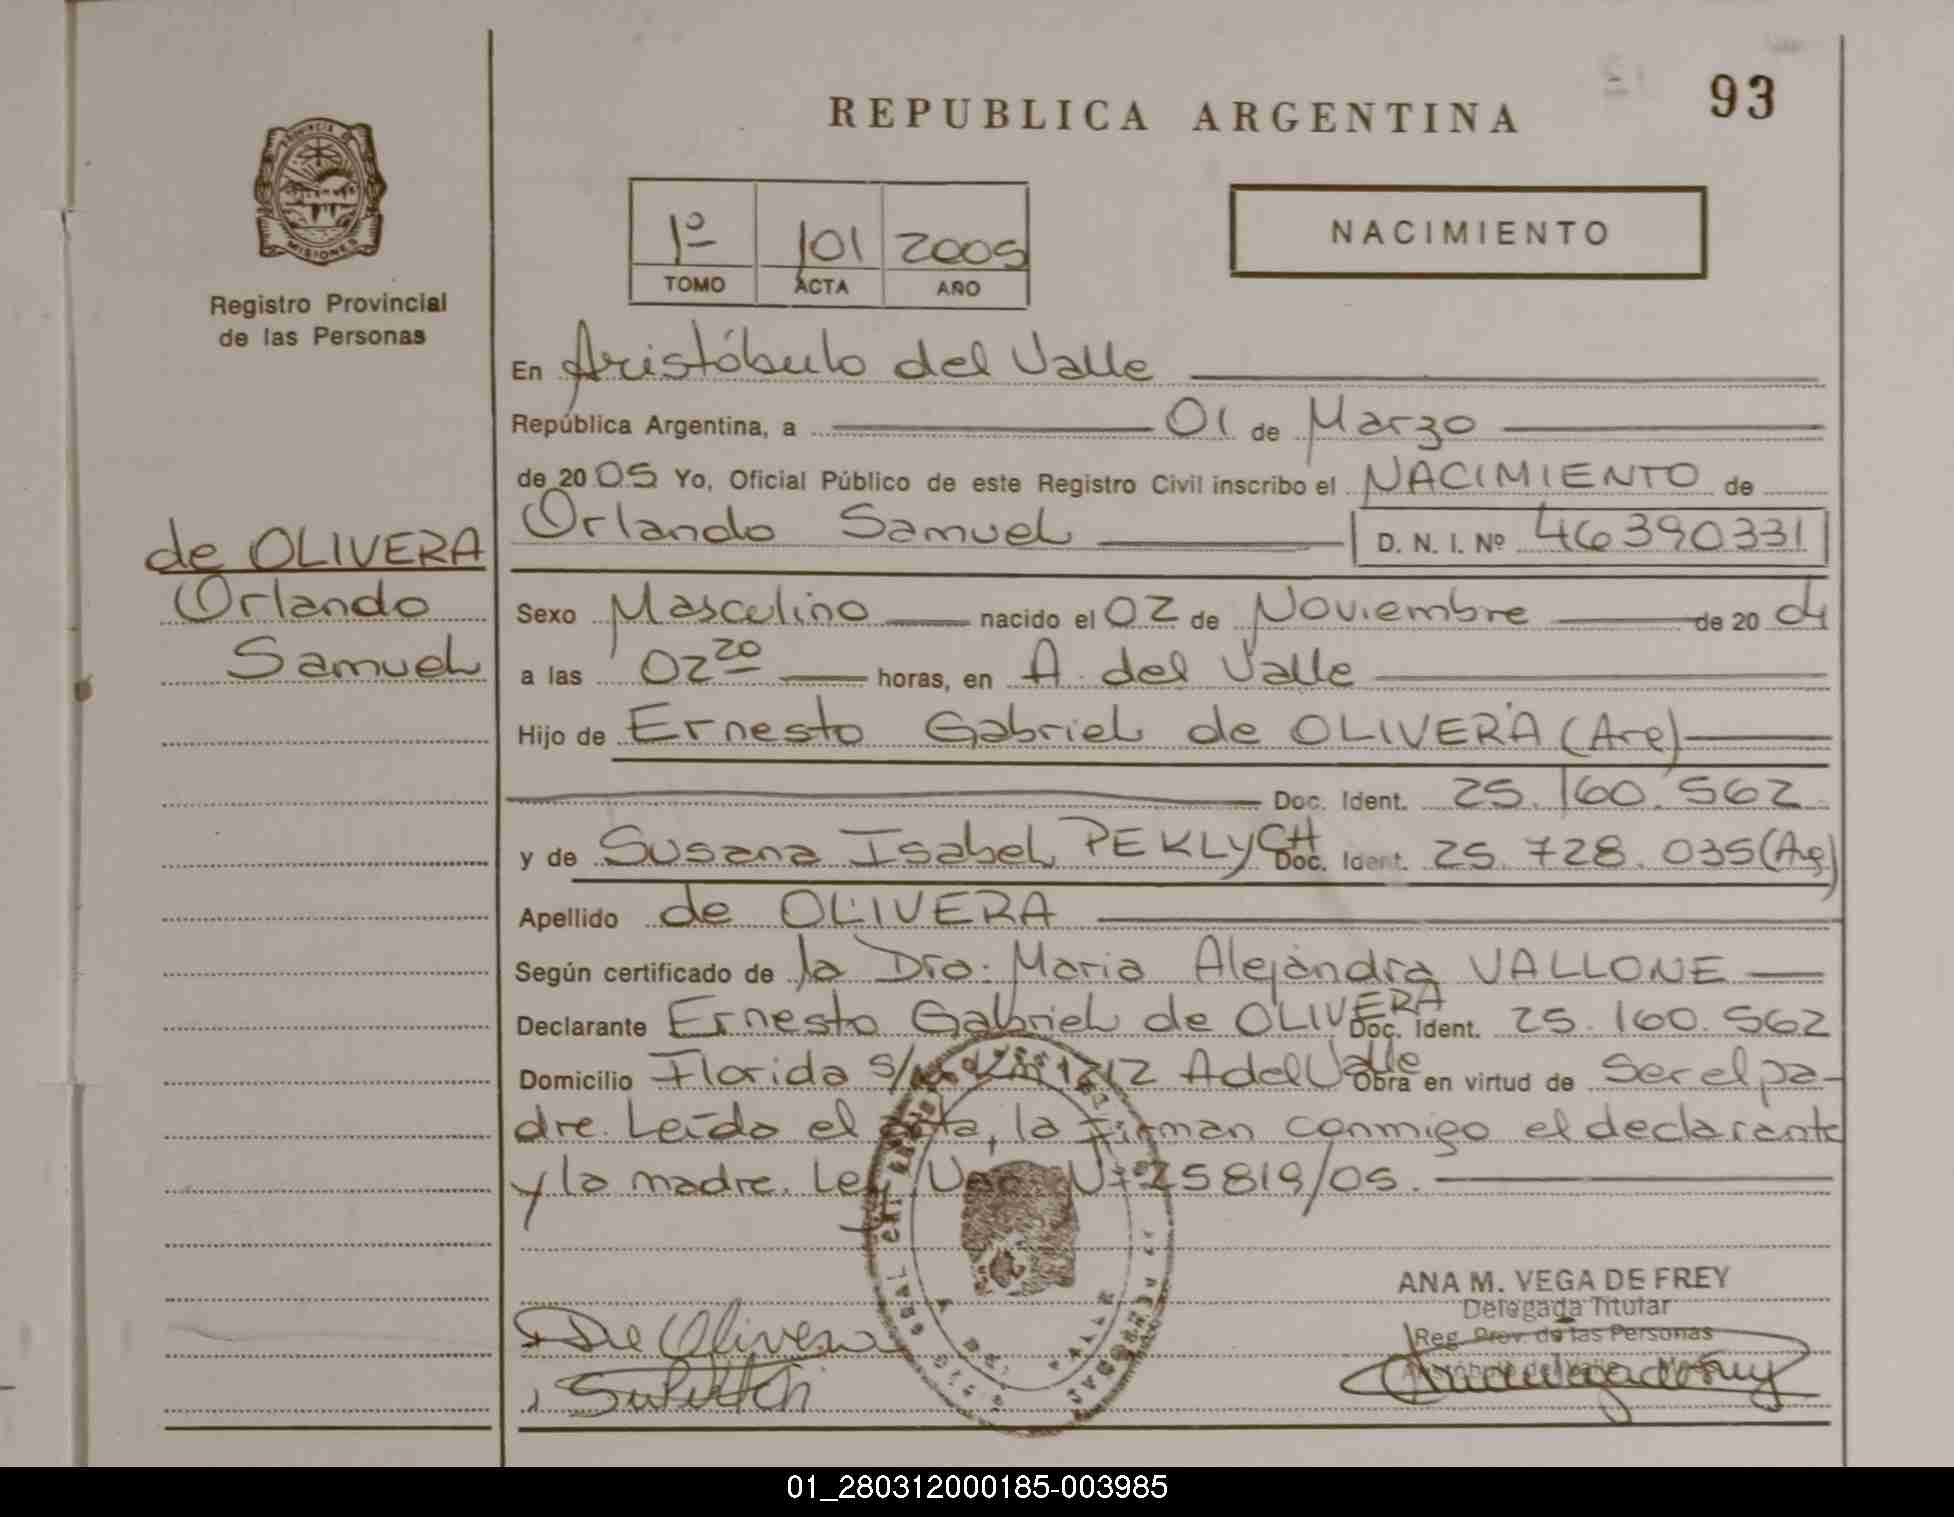 93
REPUBLICA ARGENTINA
PROVINCIA DE
MISIONES
Registro Provincial
de las Personas
1º 101 2005
TOMO ACTA AÑO
NACIMIENTO
En Aristóbulo del Valle
República Argentina, a 01 de Marzo
de 2005 Yo, Oficial Público de este Registro Civil inscribo el NACIMIENTO de
Orlando Samuel D. N. I. Nº 46390331
de OLIVERA
Orlando
Samuel
Sexo Masculino nacido el 02 de Noviembre de 20 04
a las 02 20 horas, en A. del Valle
Hijo de Ernesto Gabriel de OLIVERA (Arg)
Doc. Ident. 25.160.562
y de Susana Isabel PEKLYCH Doc. Ident. 25.728.035 (Arg)
Apellido de OLIVERA
Según certificado de la Dra. Maria Alejandra VALLONE
Declarante Ernesto Gabriel de OLIVERA Doc. Ident. 25.160.562
Domicilio Florida S/ 1212 A del Valle Obra en virtud de ser el pa-
dre. Leída el acta, la firman conmigo el declarante
y la madre. 25819/05.
De Olivera
ANA M. VEGA DE FREY
Delegada Titular
Reg. Prov. de las Personas
01_280312000185-003985